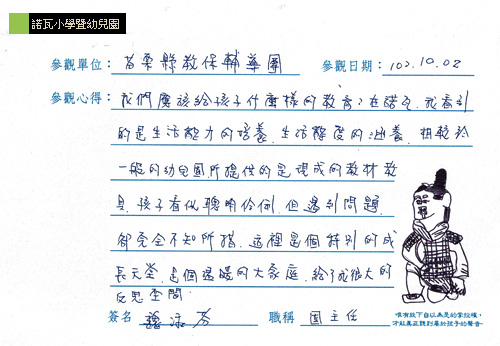 諾瓦小學暨幼兒園
參觀單位：苗栗縣教保輔導團 參觀日期：102.10.02
參觀心得：我們應該給孩子什麼樣的教育？在諾瓦，我看到
的是生活能力的培養、生活態度的涵養，相較於
一般的幼兒園所提供的是現成的教材教
具，孩子看似聰明伶俐，但遇到問題，
都完全不知所措，這裡是個特別的成
長天堂，是個溫暖的大家庭，給了我很大的
反思空間。
簽名 職稱 園主任
唯有放下自以為是的掌控權，
才能真正聽到屬於孩子的聲音